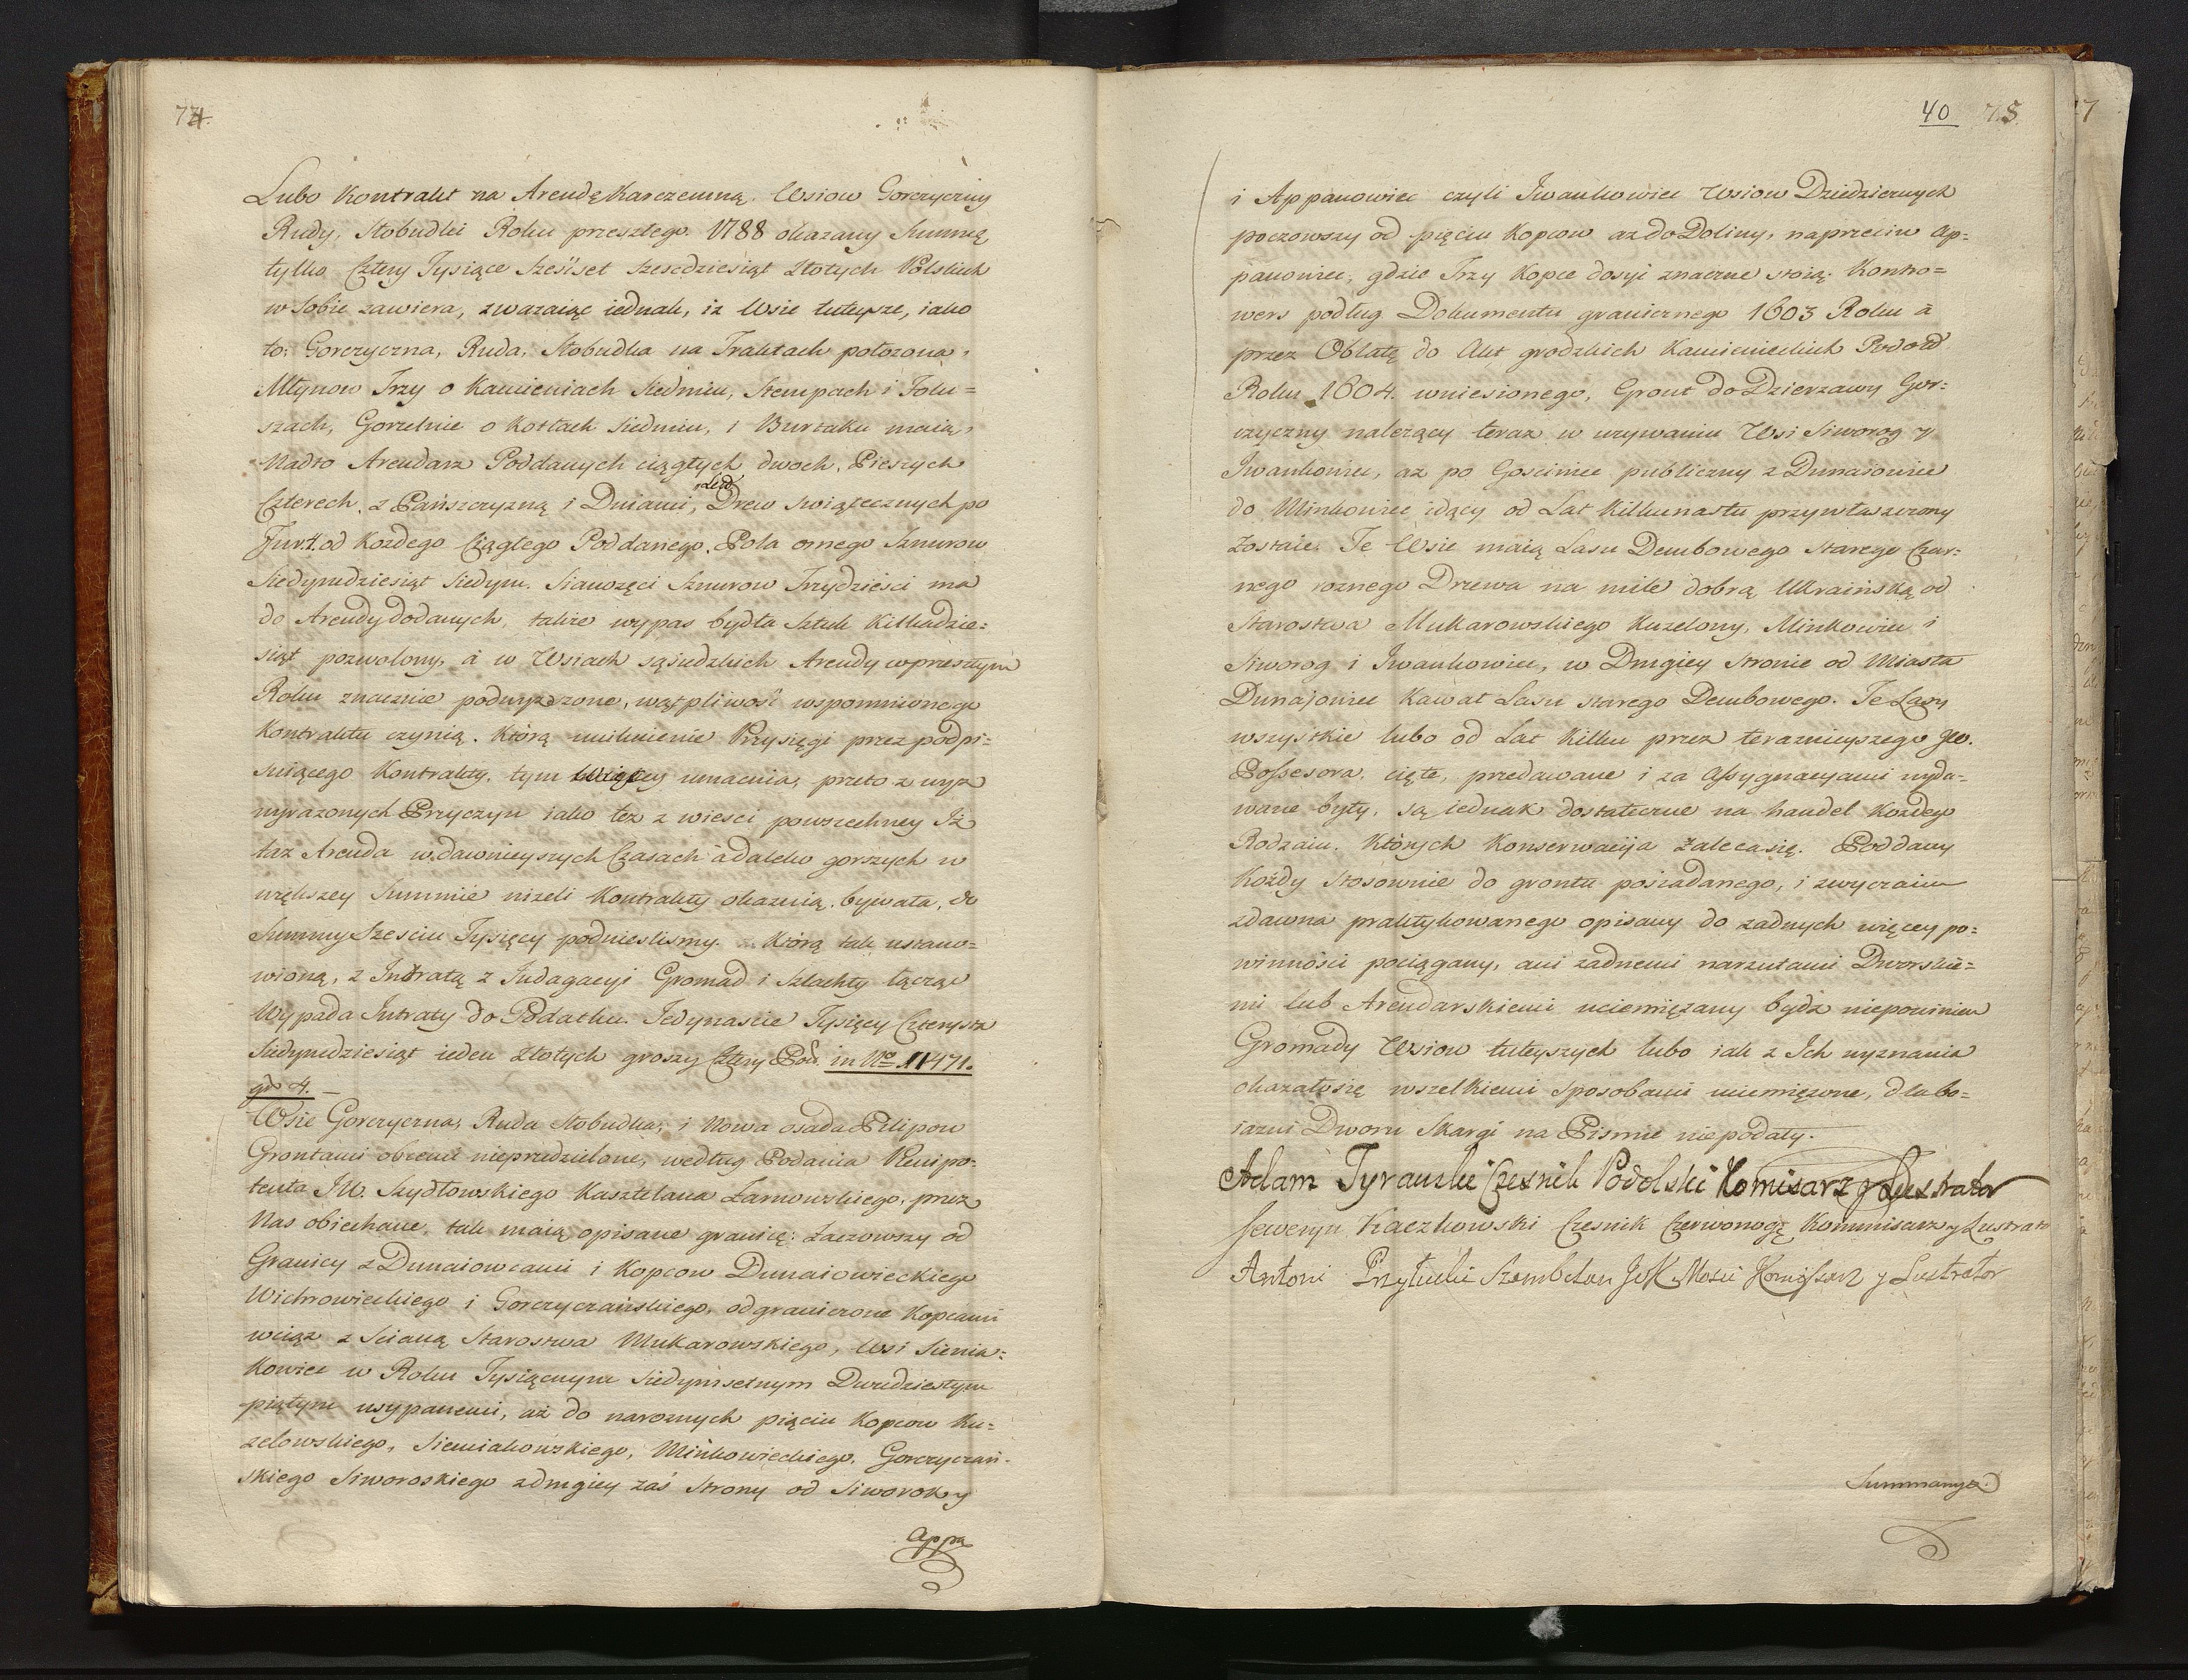 74.
Lubo Kontrakt na Arendę Karczemną Wsiow Gorczyczny
Rudy, Stobudki Roku przeszłego 1788 okazany Summę
tylko Cztery Tysiące Sześset Szescdziesiąt Złotych Polskich
w Sobie zawiera, zwazaiąc iednak, iz Wsie tuteysze, iako
to: Gorczyczna, Ruda, Stobudka na Traktach połozona,
Młynow Trzy o Kamieniach Siedmiu, Stempach i Folu=
szach, Gorzelnie o Kotłach Siedmiu, i Burtaku maią,
Nadto Arendarz Poddanych ciągłych dwoch, Pieszych
Czterech, z Pańszczyzną i Dniami, Drew swiątecznych po
Furze od Kozdego Ciągłego Poddanego, Pola ornego Sznurow
Siedymdziesiąt Siedym. Sianozęci Sznurow Trzydzieści ma
do Arendy dodanych, takze wypas bydła Sztuk Kilkadzie=
siąt pozwolony, à w Wsiach sąsiedzkich Arendy w przeszłym
Roku znacznie podwyzszone, wątpliwość wspomnionego
Kontraktu czynią. Którą uniknienie Przysięgi przez podpi=
suiącego Kontrakty, tym więcey umacnia, przeto z wyz
wyrazonych Przyczyn iako tez z wiesci powszechney Iż
taz Arenda w dawnieyszych Czasach à daleko gorszych w
większey Summie nizeli Kontrakty okazuią, bywała, do
Summy Szesciu Tysięcy podnieslismy. Którą tak ustano=
wioną, z Intratą z Indagacyi Gromad i Szlachty łącząc
Wypada Intraty do Podatku Jedynascie Tysięcy Czterysta
Siedymdziesiąt ieden Złotych groszy Cztery in No 11471.
gr 4. —
Wsie Gorczyczna, Ruda Stobudka, i Nowa osada Pilipow
Grontami obiemi nieprzedzielone, według Podania Plenipo=
tenta JW. Szydłowskiego Kasztelana Żarnowskiego, przez
Nas obiechane, tak maią opisane granicę: Zacząwszy od
Granicy z Dunaiowcami i Kopcow Dunaiowieckiego
Wichrowieckiego i Gorczyczańskiego, odgraniczone Kopcami
wciąz z Scianą Starostwa Mukarowskiego, Wsi Siemia=
kowiec w Roku Tysiącznym Siedymsetnym Dwudziestym
piątym usypanemi, aż do naroznych pięciu Kopcow Ku=
zelowskiego, Siemiakowskiego, Minkowieckiego, Gorczyczań=
skiego Siworoskiego z drugiey zaś Strony od Siworok y
Appa
40 75.
i Appanowiec czyli Iwankowiec Wsiow Dziedzicznych
począwszy od pięciu Kopcow az do Doliny, naprzeciw Ap=
panowiec, gdzie Trzy Kopce dosyi znaczne stoią. Kontro=
wers podług Dokumentu granicznego 1603 Roku à
przez Oblatę do Akt grodzkich Kamienieckich Podol
Roku 1604. wniesionego, Gront do Dzierzawy Gor=
czyczny nalezący teraz w uzywaniu Wsi Siworog y
Iwankowiec, az po Gosciniec publiczny z Dunaiowiec
do Minkowiec idący od Lat Kilkunastu przywłaszczony
Zostaie. Te Wsie maią Lasu Dembowego Starego Czar=
nego roznego Drzewa na mile dobrą Ukraińską od
Starostwa Mukarowskiego Kuzelowy, Minkowiec i
Siworog i Iwankowiec, w Drugiey Stronie od Miasta
Dunajowiec Kawał Lasu starego Dembowego. Te Lasy
wszystkie lubo od Lat Kilku przez teraznieyszego JW.
Possesora, cięte, przedawane i za Assygnacyami wyda=
wane były, są iednak dostateczne na handel Kozdego
Rodzaiu. Których Konserwacyja Zaleca się. Poddany
Kozdy Stosownie do grontu posiadanego, i zwyczaiu
zdawna praktykowanego opisany do zadnych więcey po=
winności pociągany, ani zadnemi narzutami Dworskie=
mi lub Arendarskiemi uciemięzany bydz niepowinien
Gromady Wsiow tuteyszych lubo iak z Ich wyznania
okazało się wszelkiemi Sposobami uciemięzone, dla bo=
iazni Dworu Skargi na Pismie niepodały.
Adam Tyrauski Czesnik Podolski Komisarz y Lustrator
Seweryn Kaczkowski Czesnik Czerwonogr Kommisarz y Lustrator
Antoni Przyłuski Szambelan JK Mosci Komissarz y Lustrator
Summaryz